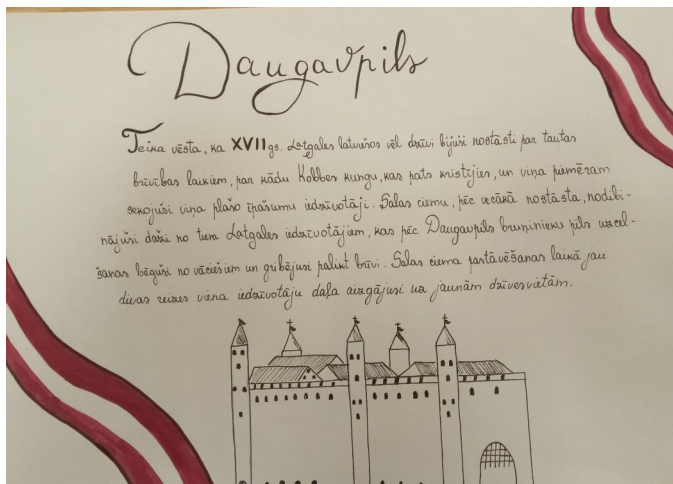 Daugavpils
Teika vēsta, ka XVII gs. Latgales latviešos vēl dzīvi bijuši nostāsti par tautas
brīvības laikiem, par kādu Kobbes kungu, kas pats kristījies, un viņa piemēram
sekojuši viņa plašo īpašumu iedzīvotāji. Salas ciemu, pēc vecākā nostāsta, nodibi-
nājuši daži no tiem Latgales iedzīvotājiem, kas pēc Daugavpils bruņinieku pils uzcel-
šanas bēguši no vāciešiem un gribējuši palikt brīvi. Salas ciema pastāvēšanas laikā jau
divas reizes viena iedzīvotāju daļa aizgājusi uz jaunām dzīvesvietām.